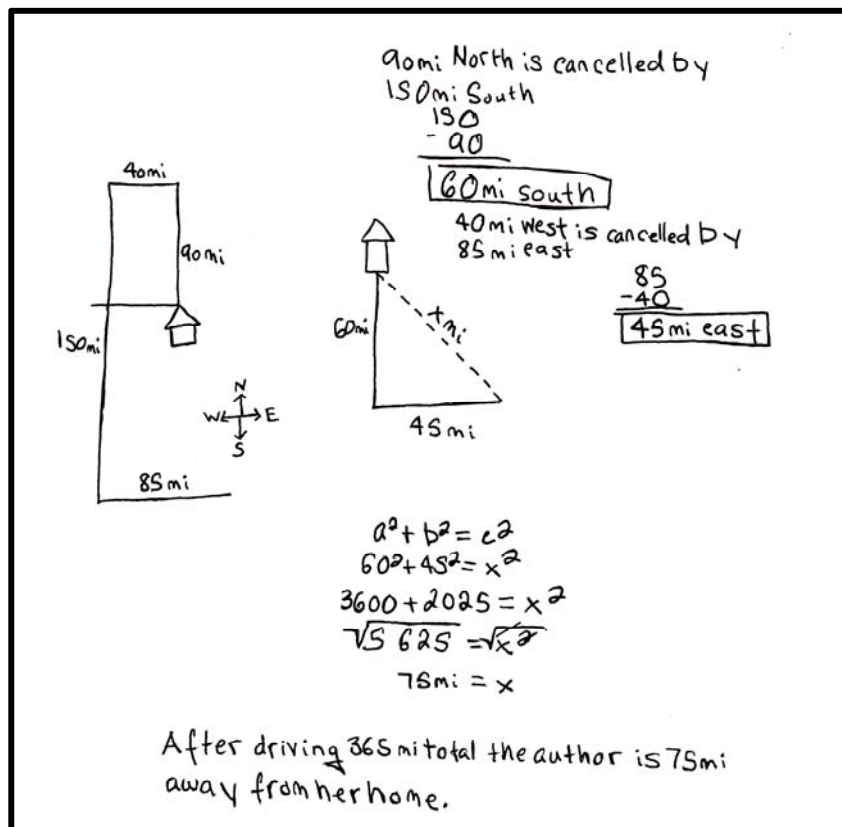 90mi North is cancelled by
150mi South
150
- 90
60mi south
40mi west is cancelled by
85mi east
85
-40
45mi east
40mi
90mi
150mi
N
W E
S
85mi
60mi
x mi
45mi
a² + b² = c²
60² + 45² = x²
3600 + 2025 = x²
√5625 = √x²
75mi = x
After driving 365mi total the author is 75mi
away from her home.